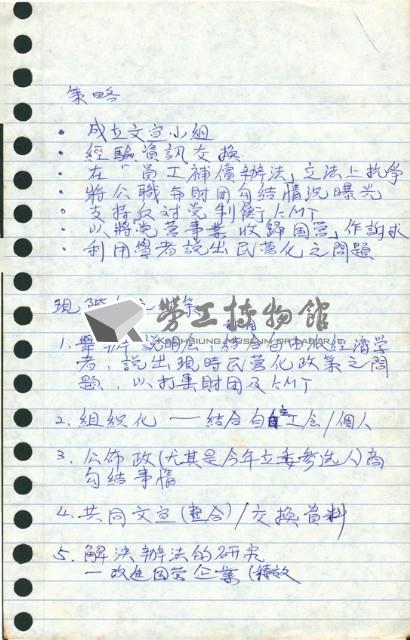 策略
· 成立文宣小組
· 經驗資訊交換
· 在「員工補償辦法」立法上抗爭
· 將公職與財團勾結情況曝光
· 支持反對党制衡KMT
· 以將党营事業收歸国营,作訴求
· 利用學者說出民营化之問題
現階
勞工博物館
KAOHSIUNG MUSEUM OF LABOR
1. 舉辦 說明会,結合台中及經濟學
者,說出現時民营化政策之問
題,以打擊財团及KMT
2. 組織化 — 結合自主工会/個人
3. 公佈政(尤其是今年立委參选人)商
勾結事情
4. 共同文宣(整合)/交換資料
5. 解決辦法的研究
— 改進国营企業(績效